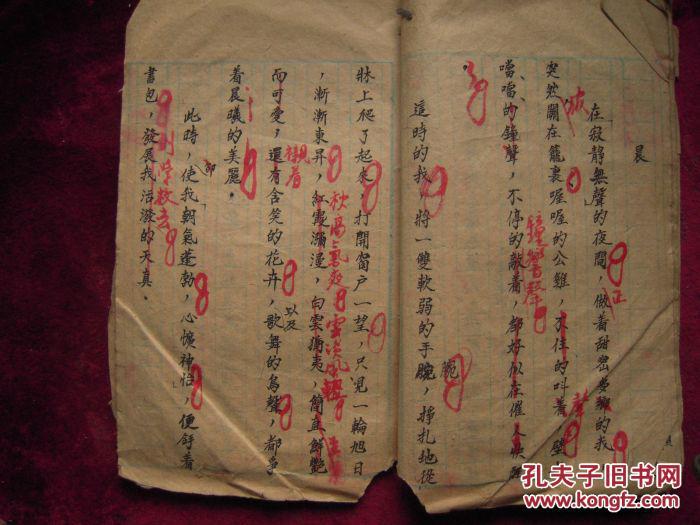 晨
在寂静無聲的夜間，做着甜密
的我
突然關在籠裏喔喔的公雞，不住的叫着，壁
噹、噹、的鐘聲，不停的敲着，都好似在催人
這時的我，將一雙軟弱的手腕，掙扎地從
牀上爬了起來，打開窗户一望，只見一輪旭日
，漸漸東昇，紅霞瀰漫，白雲
，簡直鮮艷
而可愛，還有含笑的花卉，以及歌舞的鳥聲，都爭
着晨曦的美麗。
此時，使我朝氣蓬勃，心懭神怡，便
着
書包，發展我活潑的天真。
腕
襯着
秋陽
鐘聲
孔夫子旧书网
www.kongfz.com